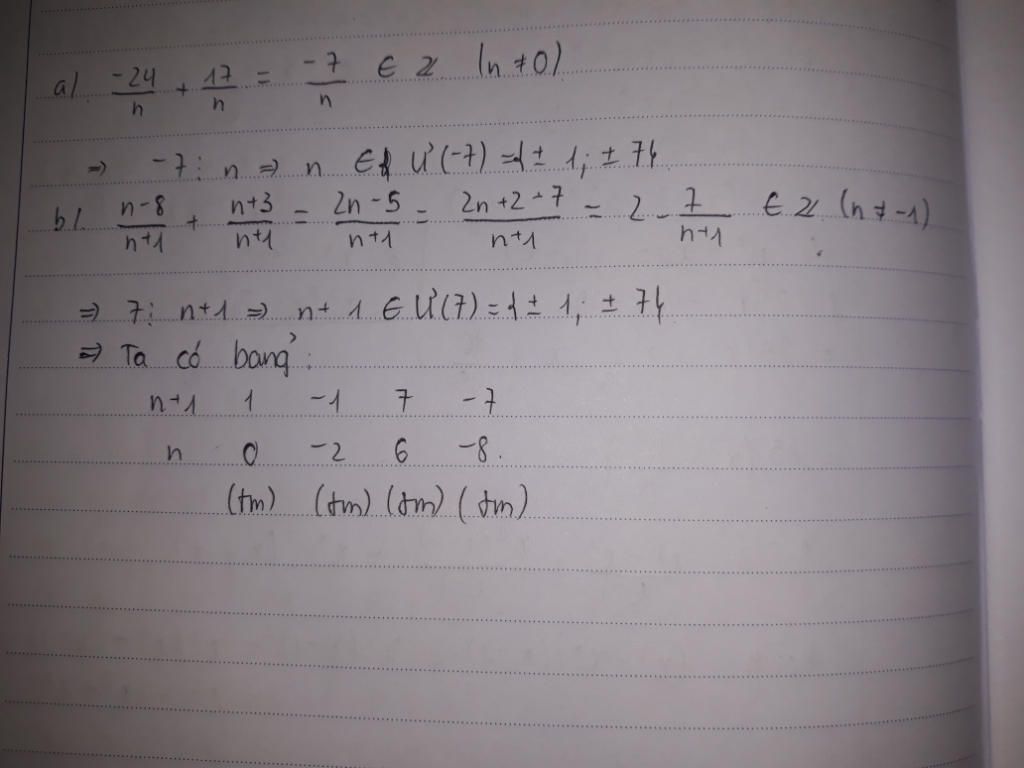 a/. -24/n + 17/n = -7/n ∈ Z (n ≠ 0)
⇒ -7 ⋮ n ⇒ n ∈ Ư(-7) = {± 1; ± 7}
b/. n-8/n+1 + n+3/n+1 = 2n-5/n+1 = 2n+2-7/n+1 = 2 - 7/n+1 ∈ Z (n ≠ -1)
⇒ 7 ⋮ n+1 ⇒ n+1 ∈ Ư(7) = {± 1; ± 7}
⇒ Ta có bảng:
n+1 1 -1 7 -7
n 0 -2 6 -8.
(tm) (tm) (tm) (tm)